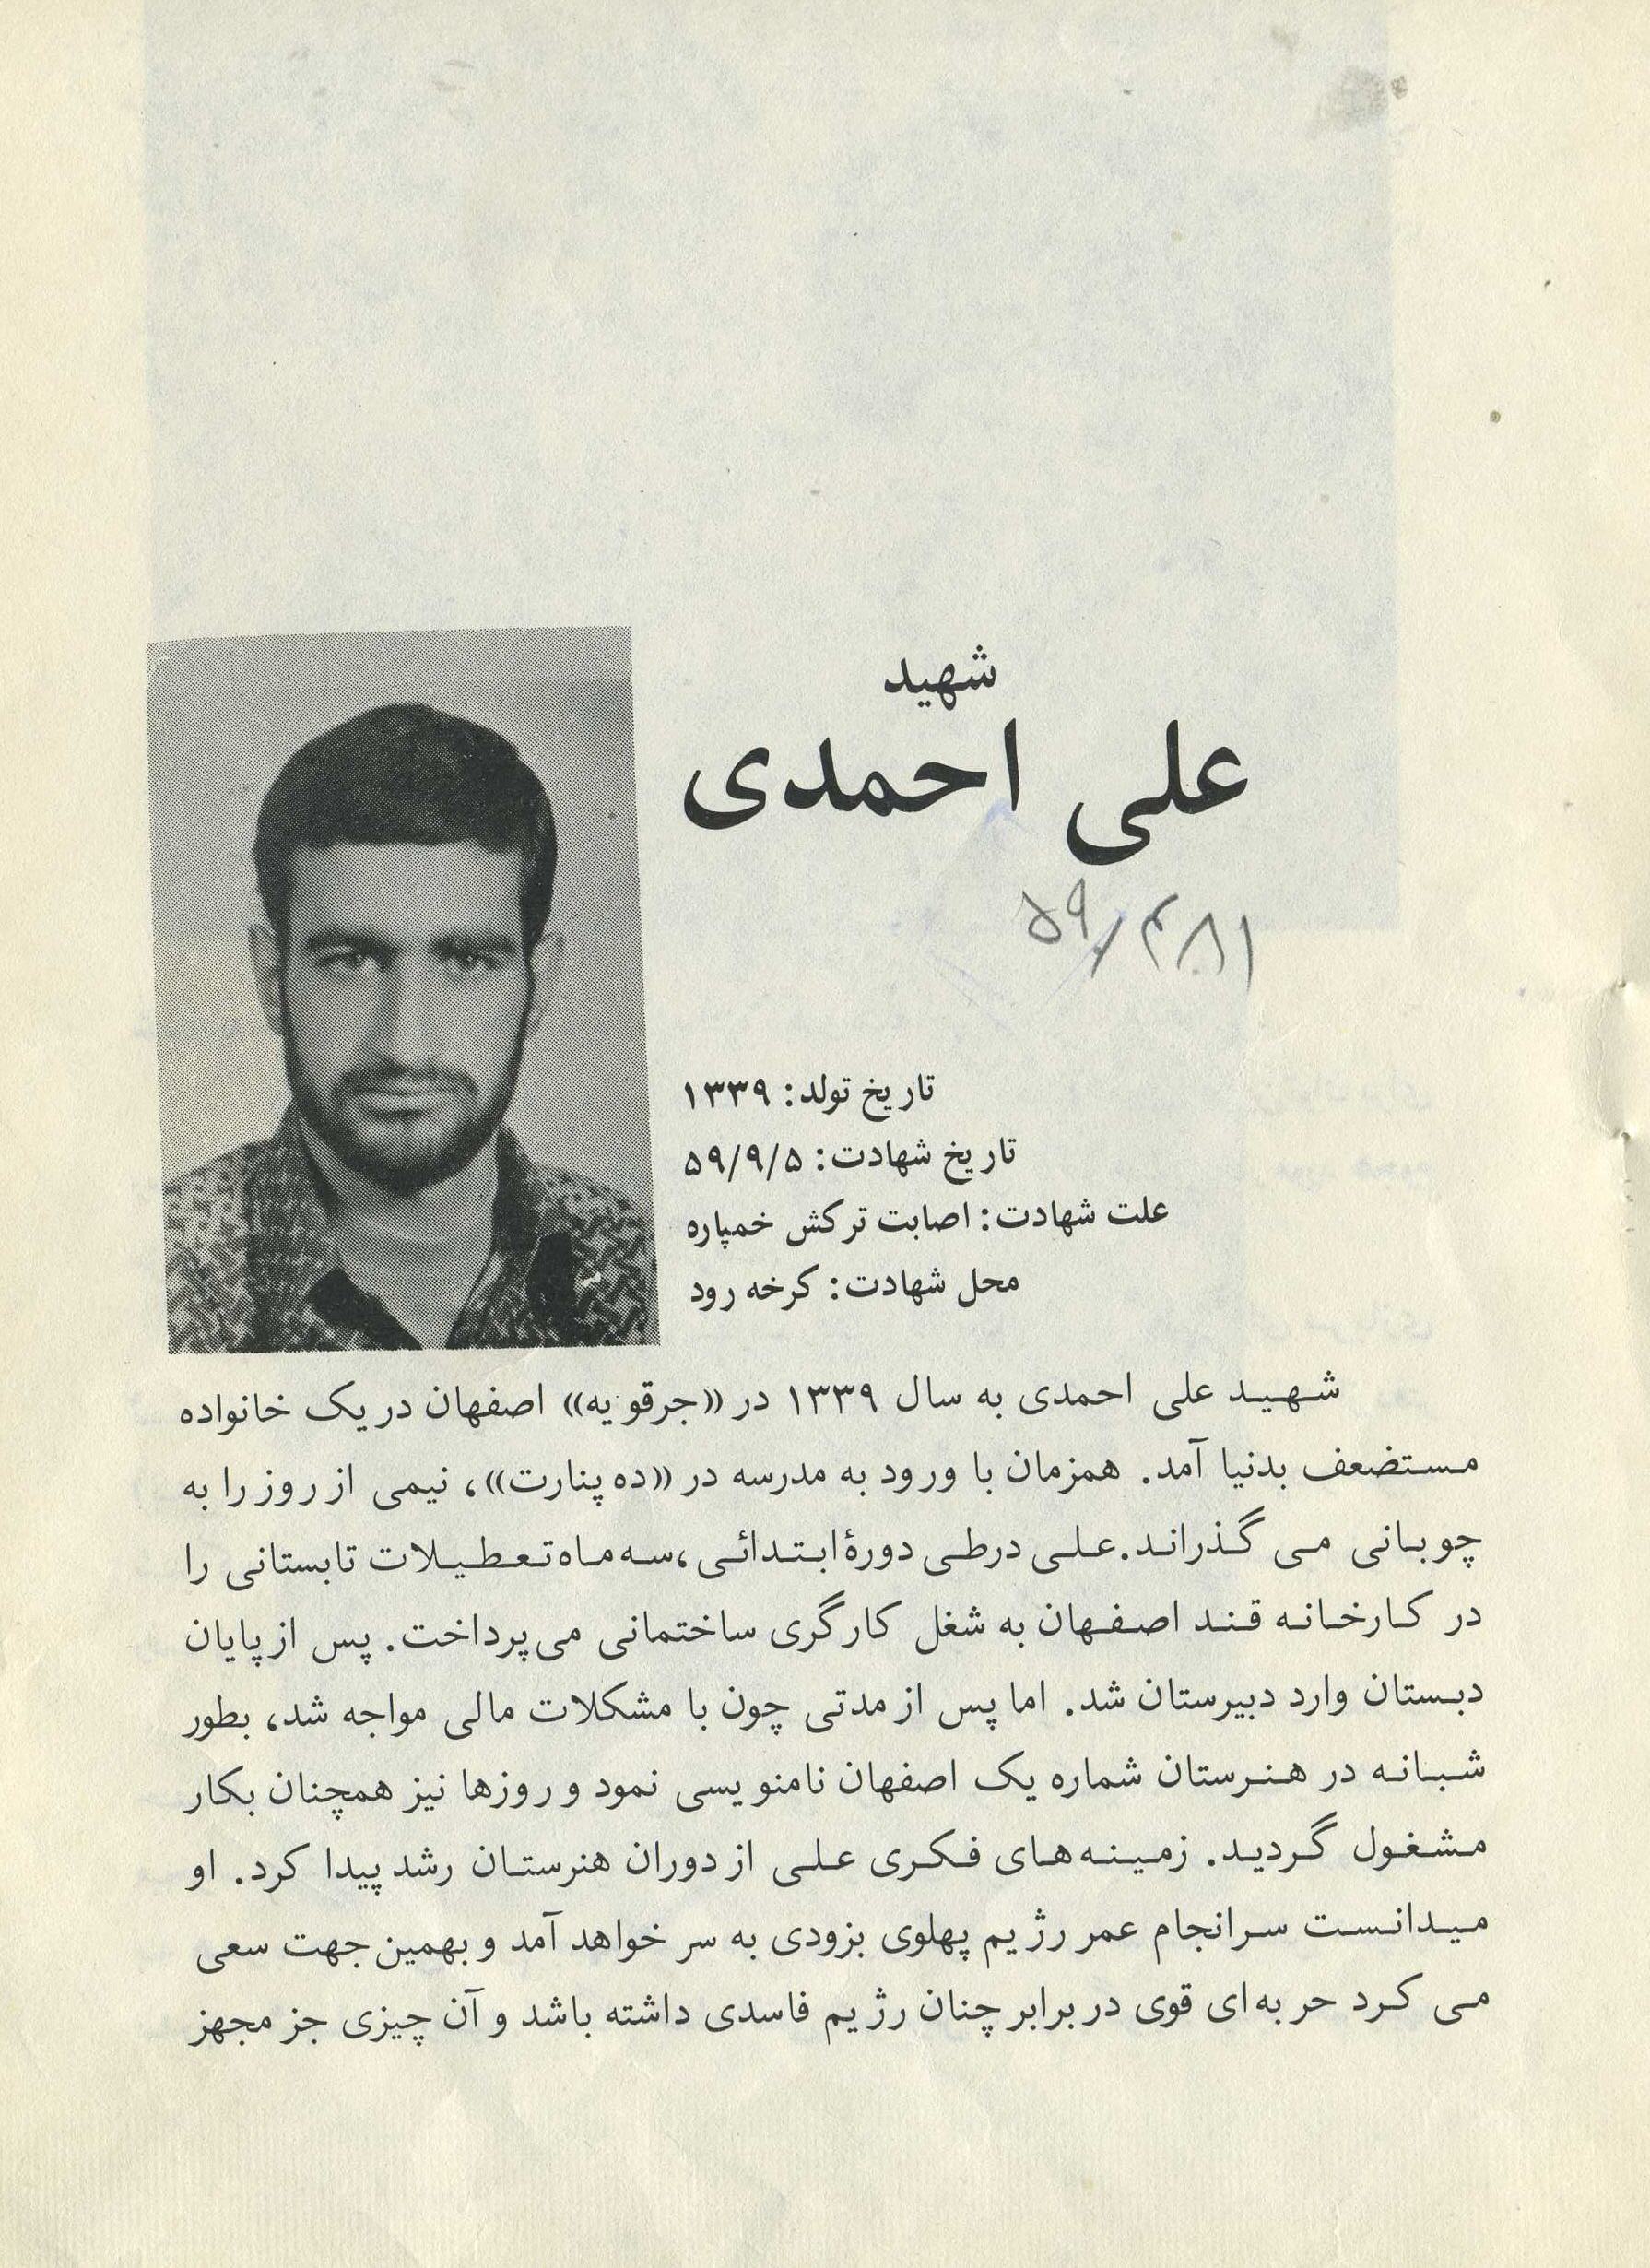 شهید
علی احمدی
۵۹/۴۸۱
تاریخ تولد: ۱۳۳۹
تاریخ شهادت: ۵۹/۹/۵
علت شهادت: اصابت ترکش خمپاره
محل شهادت: کرخه رود
شهید علی احمدی به سال ۱۳۳۹ در «جرقویه» اصفهان در یک خانواده
مستضعف بدنیا آمد. همزمان با ورود به مدرسه در «ده پنارت»، نیمی از روز را به
چوبانی می گذراند. علی درطی دورهٔ ابتدائی، سه ماه تعطیلات تابستانی را
در کارخانه قند اصفهان به شغل کارگری ساختمانی می پرداخت. پس از پایان
دبستان وارد دبیرستان شد. اما پس از مدتی چون با مشکلات مالی مواجه شد، بطور
شبانه در هنرستان شماره یک اصفهان نامنویسی نمود و روزها نیز همچنان بکار
مشغول گردید. زمینه های فکری علی از دوران هنرستان رشد پیدا کرد. او
میدانست سرانجام عمر رژیم پهلوی بزودی به سر خواهد آمد و بهمین جهت سعی
می کرد حربه ای قوی در برابر چنان رژیم فاسدی داشته باشد و آن چیزی جز مجهز